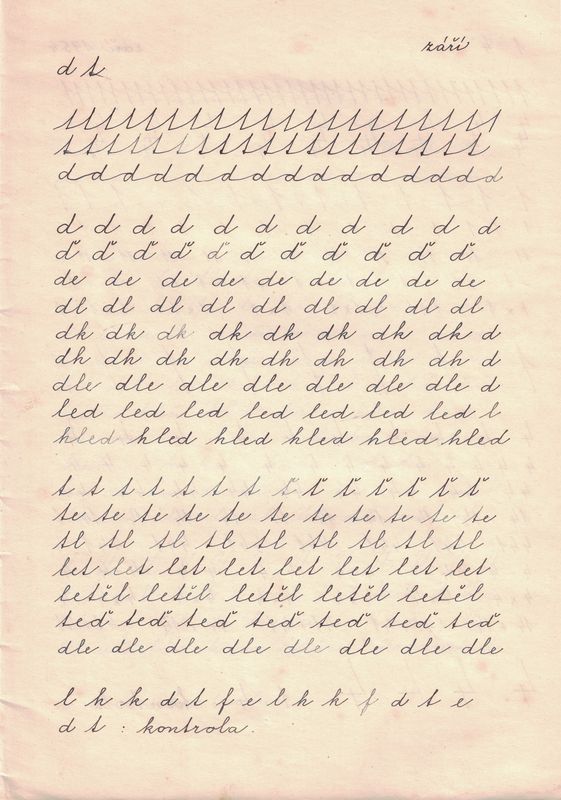 září
d t
d d d d d d d d d d d d d d d d d
d d d d d d d d d d d
ď ď ď ď ď ď ď ď ď ď ď
de de de de de de de de de
dl dl dl dl dl dl dl dl dl
dk dk dk dk dk dk dk dk d
dh dh dh dh dh dh dh dh d
dle dle dle dle dle dle dle d
led led led led led led led l
hled hled hled hled hled hled
t t t t t t t ť ť ť ť ť ť ť
te te te te te te te te te te te
tl tl tl tl tl tl tl tl tl
let let let let let let let let
letěl letěl letěl letěl letěl
teď teď teď teď teď teď teď
dle dle dle dle dle dle dle dle
l h k k d t f e l h k k f d t e
d t : kontrola.